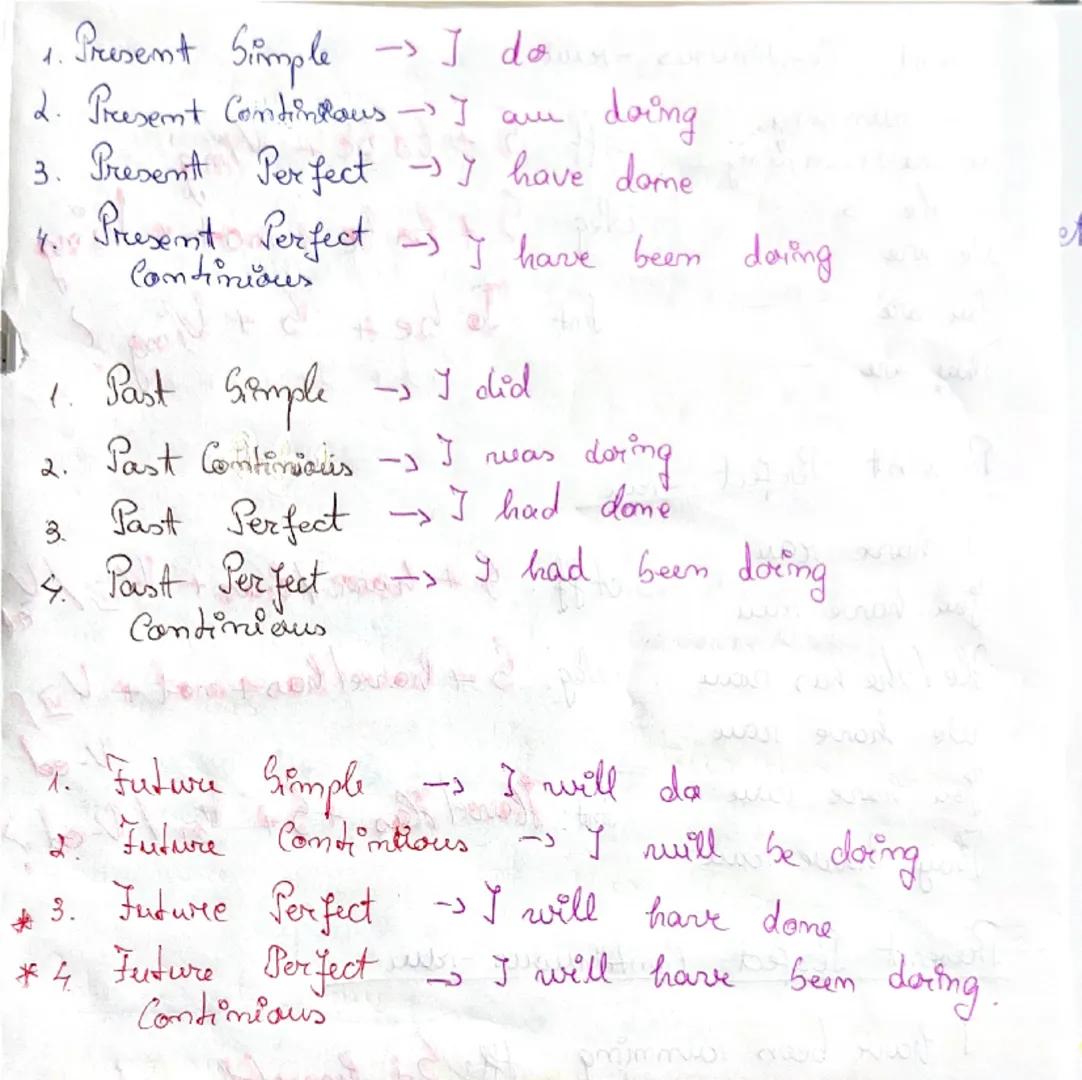 1. Present Simple -> I do
2. Present Continuous -> I am doing
3. Present Perfect -> I have done
4. Present Perfect -> I have been doing
Continious
1. Past Simple -> I did
2. Past Continious -> I was doing
3. Past Perfect -> I had done
4. Past Perfect -> I had been doing
Continious
1. Future Simple -> I will do
2. Future Continuous -> I will be doing
* 3. Future Perfect -> I will have done
* 4. Future Perfect -> I will have been doing.
Continious